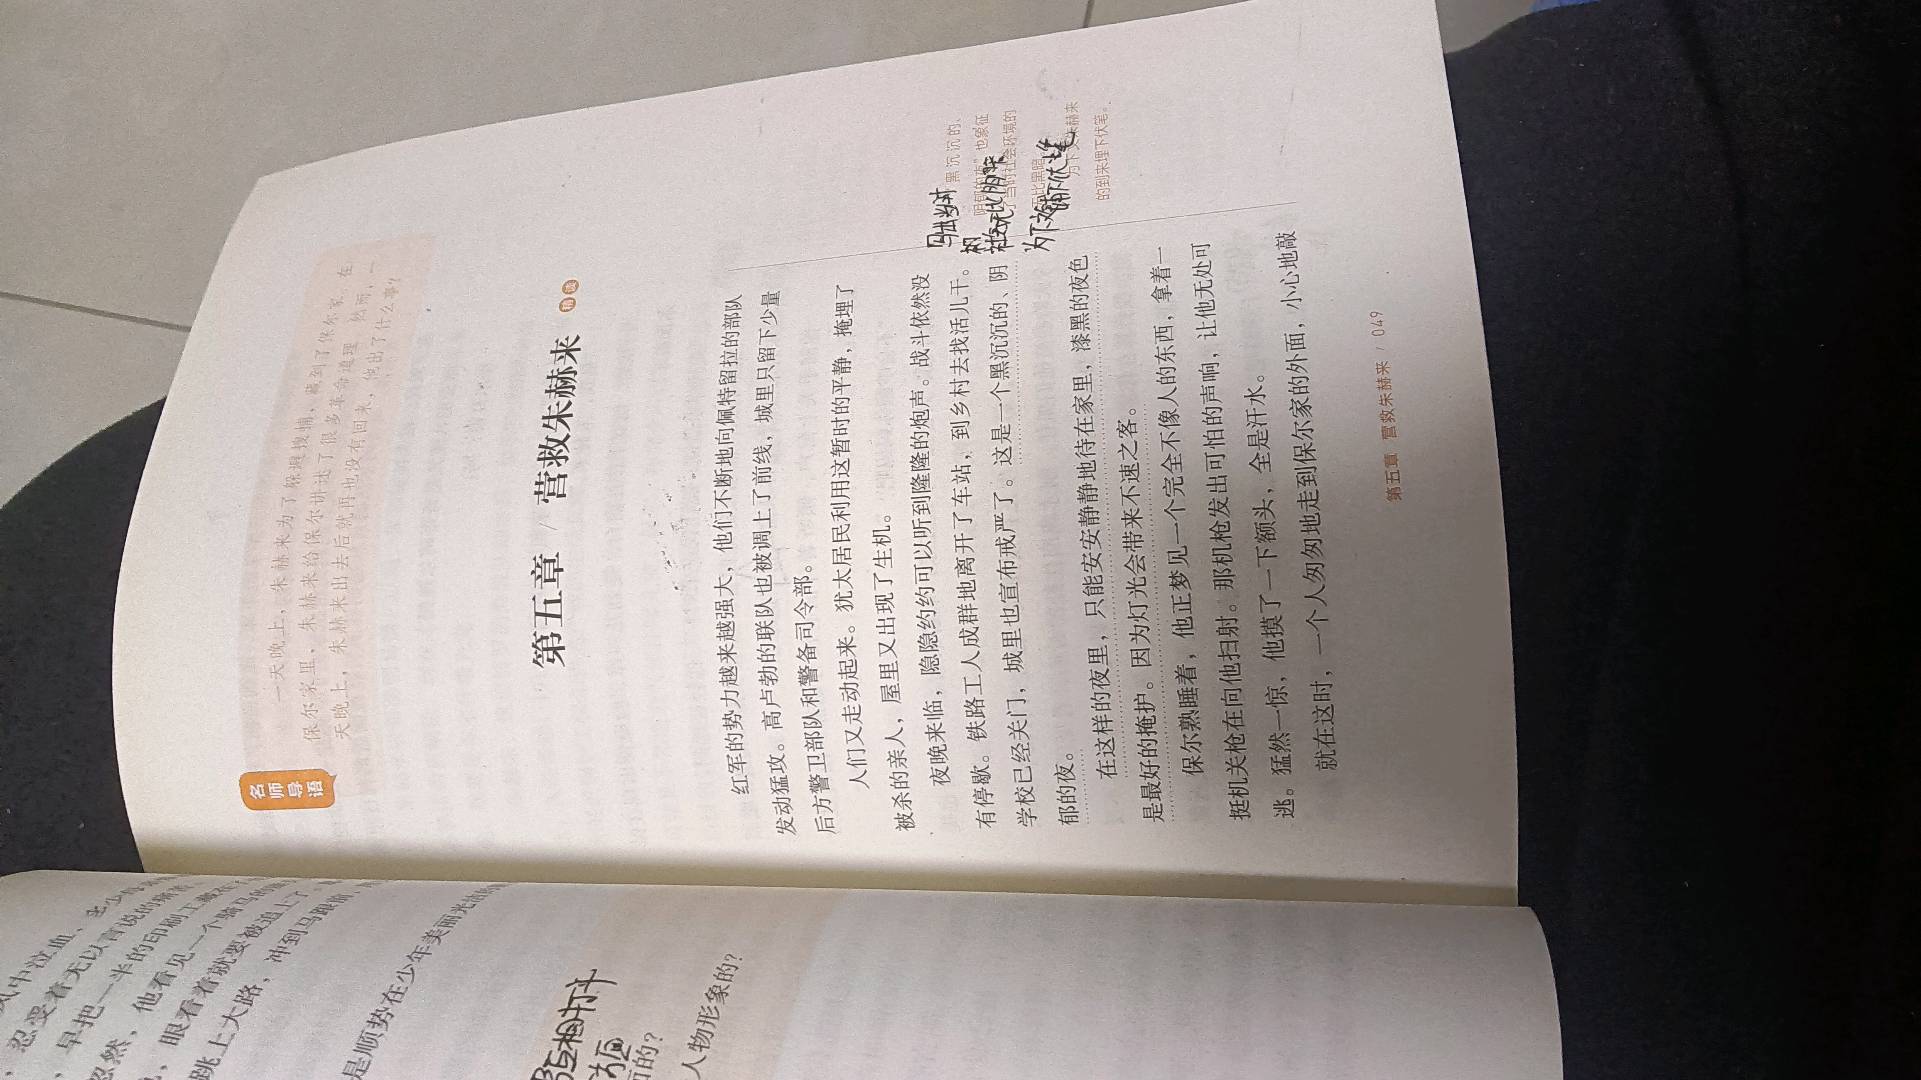 名师导语
一天晚上，朱赫来为了躲避搜捕，藏到了保尔家。在
保尔家里，朱赫来给保尔讲述了很多革命道理。然而，一
天晚上，朱赫来出去后就再也没有回来，他出了什么事？
第五章 / 营救朱赫来 精读
红军的势力越来越强大，他们不断地向佩特留拉的部队
发动猛攻。高卢勃的联队也被调上了前线，城里只留下少量
后方警卫部队和警备司令部。
人们又走动起来。犹太居民利用这暂时的平静，掩埋了
被杀的亲人，屋里又出现了生机。
夜晚来临，隐隐约约可以听到隆隆的炮声。战斗依然没
有停歇。铁路工人成群地离开了车站，到乡村去找活儿干。
学校已经关门，城里也宣布戒严了。这是一个黑沉沉的、阴
郁的夜。
在这样的夜里，只能安安静静地待在家里，漆黑的夜色
是最好的掩护。因为灯光会带来不速之客。
保尔熟睡着，他正梦见一个完全不像人的东西，拿着一
挺机关枪在向他扫射。那机枪发出可怕的声响，让他无处可
逃。猛然一惊，他摸了一下额头，全是汗水。
就在这时，一个人匆匆地走到保尔家的外面，小心地敲
黑沉沉的、
也象征
了当时社会环境的
无比黑暗
为下文朱赫来
的到来埋下伏笔。
社会无比黑暗
为下文埋下伏笔
第五章 营救朱赫来 / 049
风中泣血、
忍受着无以言说的
早把一半的印刷工
忽然，他看见一个骑马的
眼看着就要被追上了。
跳上大路，冲到马跟前，
是顺势在少年美丽光洁的
互相
的？
人物形象的？